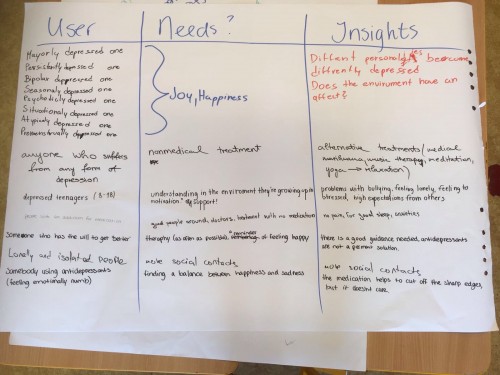 User
Needs?
Insights
Mayorly depressed one
Persistantly depressed one
Bipolar deppressed one
Seasonaly depressed one
Psychoticly depressed one
Situationaly depressed one
Atypically depressed one
depressed one
Joy, Happiness
Diffent
depressed
Does the enviroment have an
affect?
anyone who suffers
from any form of
depression
nonmedical treatment
alternative treatments (medical
marihuana, music therapy, meditation,
yoga → relaxation)
depressed teenagers (8-18)
understanding in the enviroment they're growing up in
motivation? support!
problems with bullying, feeling lonely, feeling to
stressed, high expectations from others
good people around, doctors, treatment with no medication
no pain, for good sleep, anxieties
someone who has the will to get better
theraphy (as often as possible), reminder of feeling happy
there is a good guidance needed. antidepressants
are not a perman. solution.
Lonely and isolated people
more social contacts
more social contacts
Somebody using antidepressants
(feeling emotionally numb)
finding a balance between happiness and sadness
the medication helps to cut off the sharp edges,
but it doesnt cure.